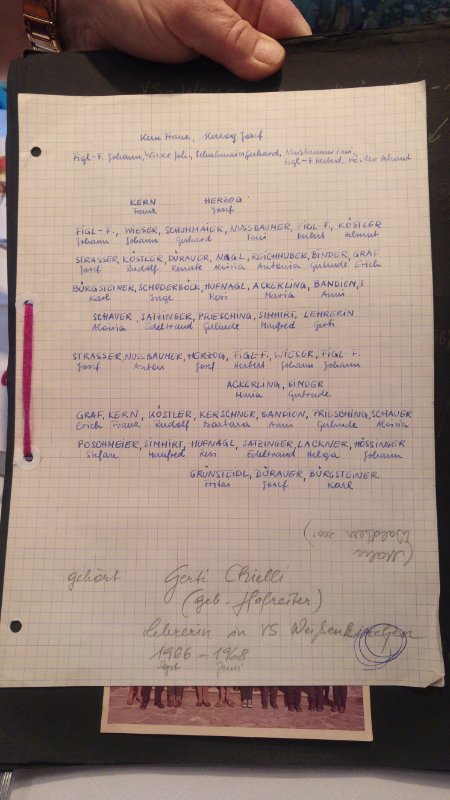 Kern Franz, Herzog Josef
Figl-F. Johann, Wieser Joh., Schuhmaier Gerhard, Nussbaumer Toni,
Figl-F. Herbert, Köstler Helmut
KERN HERZOG
Franz Josef
FIGL-F., WIESER, SCHUHMAIER, NUSSBAUMER, FIGL-F., KÖSTLER
Johann Johann Gerhard Toni Herbert Helmut
STRASSER, KÖSTLER, DÜRAUER, NAGL, REICHHUBER, BINDER, GRAF
Josef Rudolf Renate Aloisia Antonia Gertrude Erich
BÜRGSTEINER, SCHODERBÖCK, HUFNAGL, ACKERLING, BANDION,
Karl Inge Resi Maria Anni
SCHAUER, SATZINGER, PRIESCHING, SIMHIRT, LEHRERIN
Aloisia Edeltraud Gertrude Manfred Gerti
STRASSER, NUSSBAUMER, HERZOG, FIGL-F., WIESER, FIGL-F.
Josef Anton Josef Herbert Johann Johann
ACKERLING, BINDER
Maria Gertrude
GRAF, KERN, KÖSTLER, KERSCHNER, BANDION, PRIESCHING, SCHAUER
Erich Franz Rudolf Barbara Anni Gertrude Aloisia
POSCHMEIER, SIMHIRT, HUFNAGL, SATZINGER, LACKNER, HÖSSINGER
Stefan Manfred Resi Edeltraud Helga Johann
GRÜNSTEIDL, DÜRAUER, BÜRGSTEINER
Josef Karl
(Maler
gehört Gerti Chielli
(geb. Hofreiter)
Lehrerin in VS Weißenkirchen
1966 – 1968
Sept. Juni